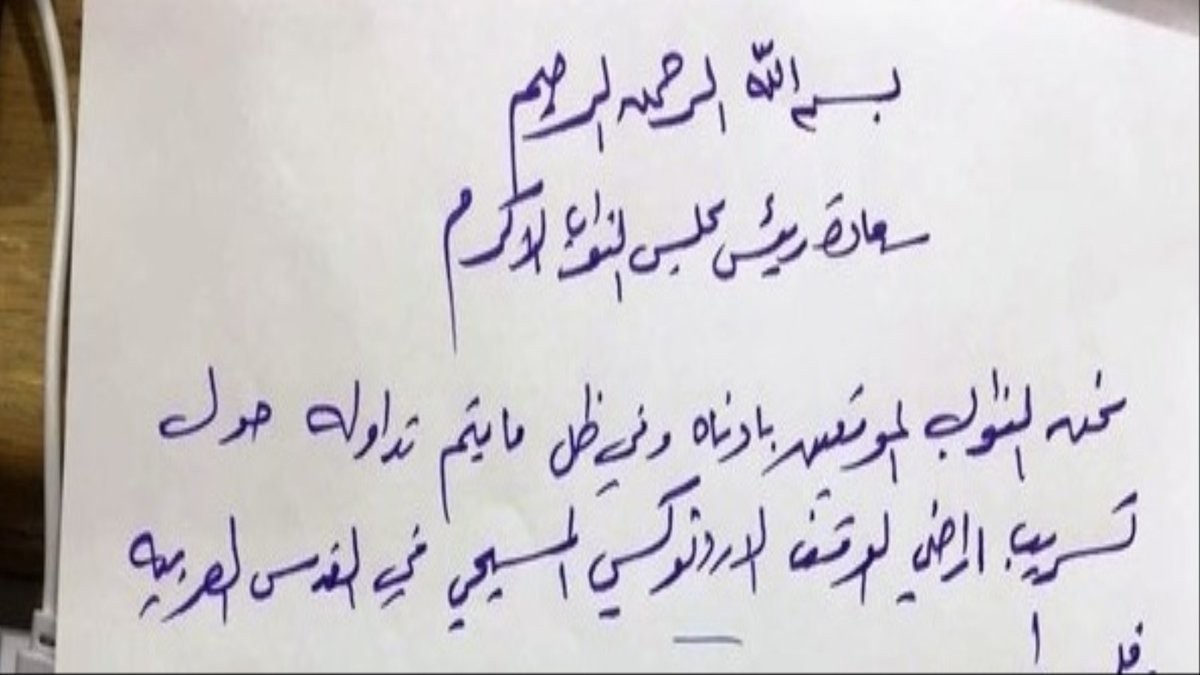 بسم الله الرحمن الرحيم
سعادة رئيس مجلس النواب الاكرم
نحن النواب الموقعين بادناه وفي ظل ما يتم تداوله حول
تسريب اراضي الوقف الارذوكسي المسيحي في القدس العربيه